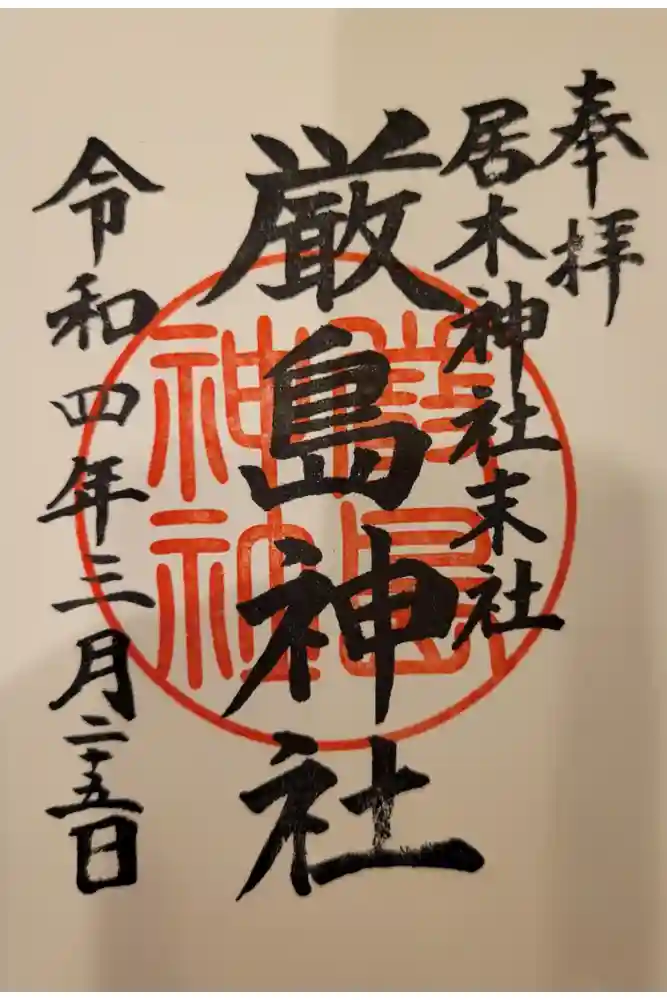 奉拝
居木神社末社
厳島神社
令和四年三月二十五日
厳島
神社